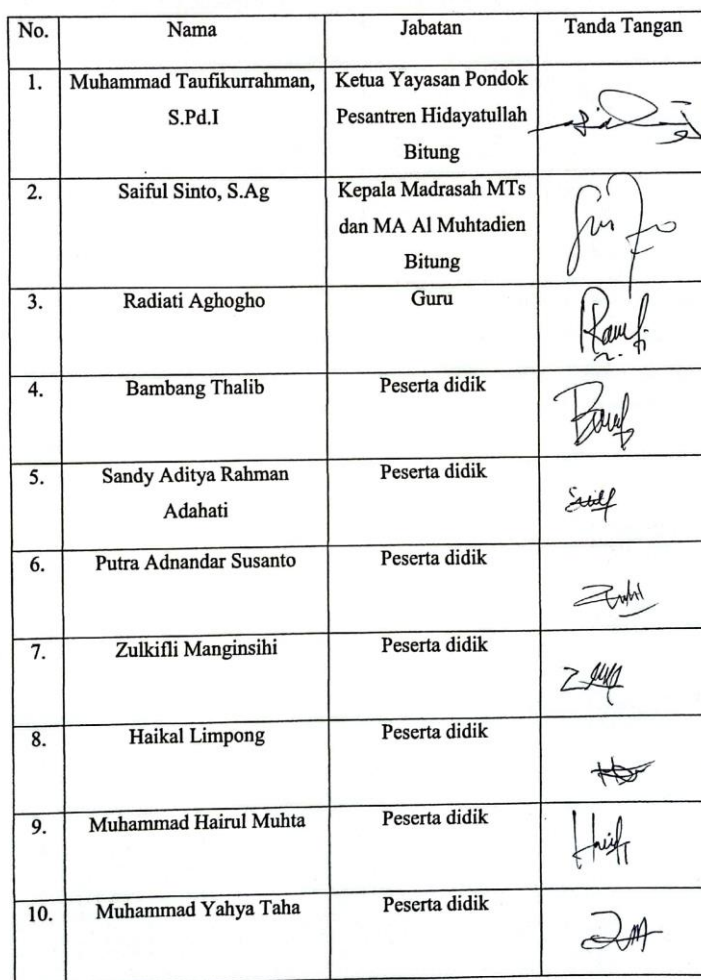 No. Nama Jabatan Tanda Tangan
1. Muhammad Taufikurrahman, Ketua Yayasan Pondok
S.Pd.I Pesantren Hidayatullah
Bitung
2. Saiful Sinto, S.Ag Kepala Madrasah MTs
dan MA Al Muhtadien
Bitung
3. Radiati Aghogho Guru
4. Bambang Thalib Peserta didik
5. Sandy Aditya Rahman Peserta didik
Adahati
6. Putra Adnandar Susanto Peserta didik
7. Zulkifli Manginsihi Peserta didik
8. Haikal Limpong Peserta didik
9. Muhammad Hairul Muhta Peserta didik
10. Muhammad Yahya Taha Peserta didik